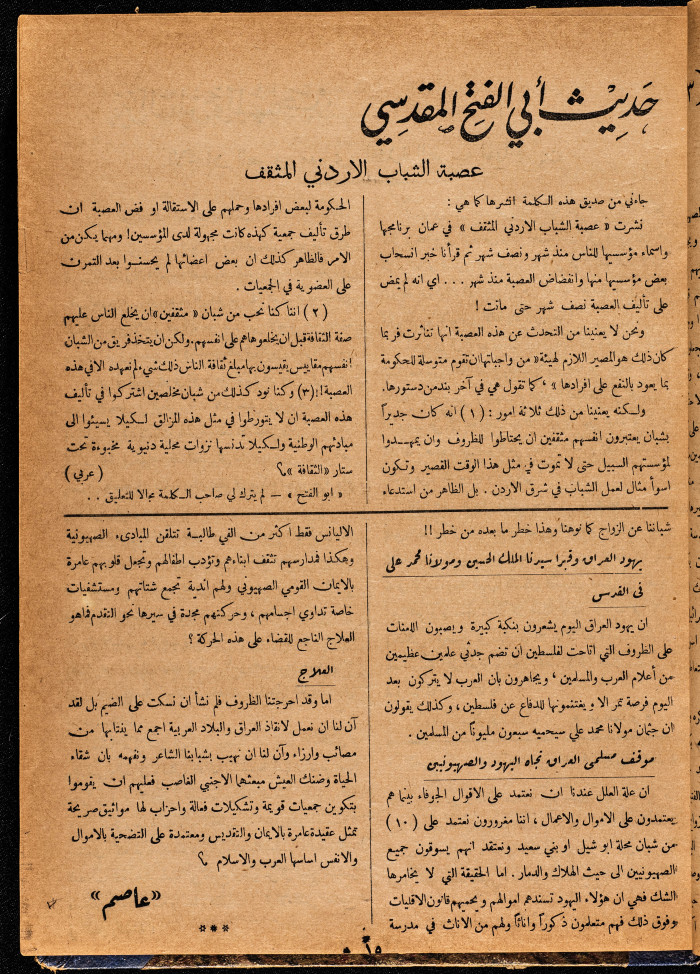 حديث أبي الفتح المقدسي
عصبة الشباب الاردني المثقف
جاءني من صديق هذه الكلمة انشرها كما هي :
نشرت « عصبة الشباب الاردني المثقف » في عمان برنامجها
واسماء مؤسسيها للناس منذ شهر ونصف شهر ثم قرأنا خبر انسحاب
بعض مؤسسيها منها وانفضاض العصبة منذ شهر . . . اي انه لم يمض
على تأليف العصبة نصف شهر حتى ماتت !
ونحن لا يعنينا من التحدث عن هذه العصبة انها تناثرت فربما
كان ذلك هو المصير اللازم لهيئة « من واجباتها ان تقوم متوسلة للحكومة
بما يعود بالنفع على افرادها » ، كما تقول هي في آخر بند من دستورها.
ولكنه يعنينا من ذلك ثلاثة امور : (١) انه كان جديراً
بشبان يعتبرون انفسهم مثقفين ان يحتاطوا للظروف وان يمهدوا
لمؤسستهم السبيل حتى لا تموت في مثل هذا الوقت القصير وتكون
اسوأ مثال لعمل الشباب في شرق الاردن . بل الظاهر من استدعاء
الحكومة لبعض افرادها وحملهم على الاستقالة او فض العصبة ان
طرق تأليف جمعية كهذه كانت مجهولة لدى المؤسسين ! ومهما يكن من
الامر فالظاهر كذلك ان بعض اعضائها لم يحسنوا بعد التمرن
على العضوية في الجمعيات .
(٢) اننا كنا نحب من شبان « مثقفين » ان يخلع الناس عليهم
صفة الثقافة قبل ان يخلعوها هم على انفسهم. ولكن ان يتخذ فريق من الشبان
انفسهم مقاييس يقيسون بها مبلغ ثقافة الناس ذلك شيء لم نعهده الا في هذه
العصبة ! (٣) وكنا نود كذلك من شبان مخلصين اشتركوا في تأليف
هذه العصبة ان لا يتورطوا في مثل هذه المزالق لكيلا يسيئوا الى
مبادئهم الوطنية ولكيلا تدنسها نزوات محلية دنيوية مخبوءة تحت
ستار « الثقافة » ؟ ( عربي )
« ابو الفتح » — لم يترك لي صاحب الكلمة مجالا للتعليق . .
شبانا عن الزواج كما نوهنا وهذا خطر ما بعده من خطر !!
يهود العراق وقبرا سيدنا الملك الحسين ومولانا محمد على
فى القدس
ان يهود العراق اليوم يشعرون بنكبة كبيرة ويصبون اللعنات
على الظروف التي اتاحت لفلسطين ان تضم جدثي علمين عظيمين
من أعلام العرب والمسلمين ، ويجاهرون بان العرب لا يتركون بعد
اليوم فرصة تمر الا ويغتنمونها للدفاع عن فلسطين ، وكذلك يقولون
ان جثمان مولانا محمد علي سيحميه سبعون مليوناً من المسلمين .
موقف مسلمى العراق تجاه اليهود والصهيونيين
ان علة العلل عندنا ان نعتمد على الاقوال الجوفاء بينما هم
يعتمدون على الاموال والاعمال ، اننا مغرورون نعتمد على (١٠)
من شبان محلة ابو شبل او بني سعيد ونعتقد انهم يسوقون جميع
الصهيونيين الى حيث الهلاك والدمار . اما الحقيقة التي لا يخامرها
الشك فهي ان هؤلاء اليهود تسندهم اموالهم ويحميهم قانون الاقليات
وفوق ذلك فهم متعلمون ذكوراً واناثاً ولهم من الاناث في مدرسة
الاليانس فقط اكثر من الفي طالبة تتلقن المبادىء الصهيونية
وهكذا فمدارسهم تثقف ابناءهم وتؤدب اطفالهم وتجعل قلوبهم عامرة
بالايمان القومي الصهيوني ولهم اندية تجمع شتاتهم ومستشفيات
خاصة تداوي اجسامهم ، وحركتهم مجدة في سيرها نحو التقدم فما هو
العلاج الناجع للقضاء على هذه الحركة ؟
العلاج
اما وقد احرجتنا الظروف فلم نشأ ان نسكت على الضيم بل لقد
آن لنا ان نعمل لانقاذ العراق والبلاد العربية اجمع مما ينتابها من
مصائب وارزاء وآن لنا ان نهيب بشبابنا الشاعر ونفهمه بأن شقاء
الحياة وضنك العيش مبعثهما الاجنبي الغاصب فعليهم ان يقوموا
بتكوين جمعيات قويمة وتشكيلات فعالة واحزاب لها مواثيق صريحة
تمثل عقيدة عامرة بالايمان والتقديس ومعتمدة على التضحية بالاموال
والانفس اساسها العرب والاسلام ؟
«عاصم»
***
١٥